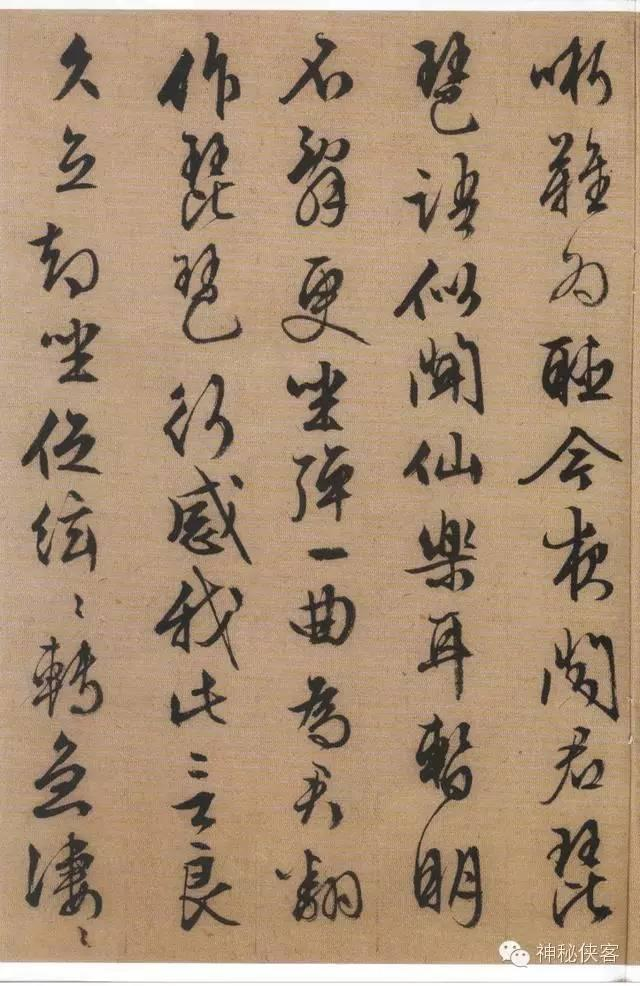 哳難為聽今夜聞君琵
琶語似聞仙樂耳暫明
不辞更坐彈一曲為君翻
作琵琶行感我此言良
久立却坐促弦〻轉急凄〻
神秘侠客